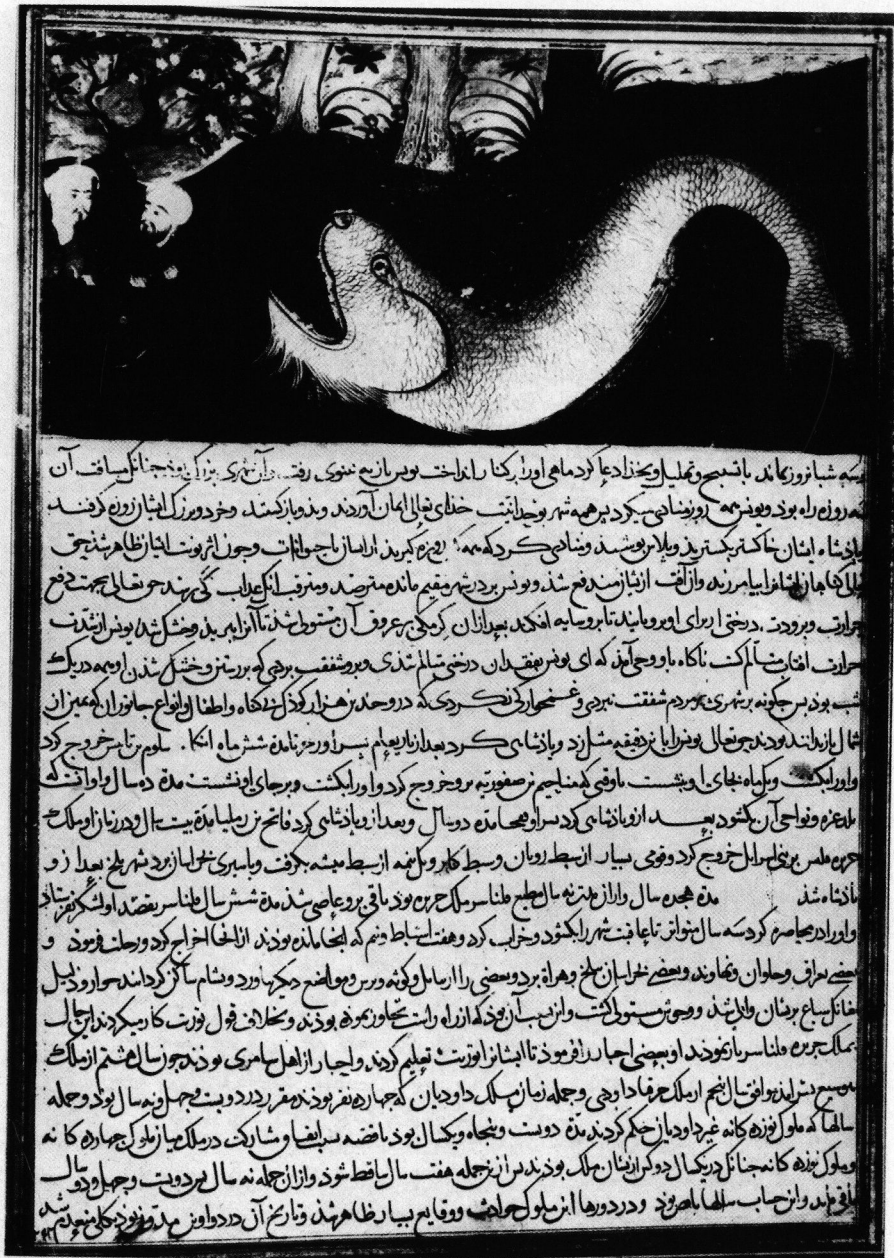 و سه شبانروز بماند با تسبیح و تهلیل و بخدا دعا کرد ماهی او را بر کنار انداخت یونس باز به نینوی رفت و آن شهری بزرگ بود چنانک مسافت آن
سه روزه راه بود و یونس همه روز منادی میکرد پس همه شهر بوحدانیت خدای تعالی ایمان آوردند و بدو بازگشتند و خرد و بزرگ ایشان روزه گرفتند
پادشاه ایشان خاکستر بگسترید و پلاس پوشید و منادی کرد که همه روزه گیرید از انسان تا حیوانات و چون اثر توبت ایشان ظاهر شد حق
تعالی گناهان ایشان را بیامرزید و آن آفت ازیشان مندفع شد و یونس بر در شهر مقیم مانده مترصد و مترقب آنک عذاب کی رسد حق تعالی بجهت دفع
حرارت و برودت درختی از برای او برویانید تا برو سایه افکند بعد از آن کرمکی بر عروق آن مستولی شد تا آنرا ببرید و خشک شد یونس از شدت
حرارت آفتاب متألم گشت ناگاه باو وحی آمد که ای یونس بفقدان درختی متألم شدی و برو شفقت بردی که بر رستن و خشک شدن او همه در یک
شب بود پس چگونه بر شهری و مردم شفقت نبردی و غمخوارگی نکردی که درو چندین هزار کودک بی گناه و اطفال و انواع جانوران که یمین از
شمال باز ندانند بودند حق تعالی یونس را باین دقیقه مثل زد و پادشاهی کرد بعد از یاربعام پسر او زخریا مدة شش ماه آنگاه سلوم بن یابیش خروج کرد
و او را بکشت و یک ماه بجای او بنشست تا وقتی که مناحیم بن صفوریه برو خروج کرد و او را بکشت و بر جای او نشست مدة ده سال و او آنست که
بلد غزه و نواحی آن بگشود بعد ازو پادشاهی کرد پسر او فقحیا مدة دو سال و بعد ازو پادشاهی کرد فاقح بن رملیا مدة بیست سال و در زمان او ملک
جزیره ملنس بر بنی اسرایل خروج کرد و قومی بسیار از سبط روبان و سبط کاد و یک نیمه از سبط میشه بگرفت و باسیری بخراسان برد شهر بلخ بعد ازو
پادشاه شد مدة هجده سال و از آن مدت نه سال مطیع ملناسر ملک جزیره بود باقی برو عاصی شد مدة شش سال ملناسر بقصد او لشکر بفرستاد
و او را در محاصره کرد سه سال متواتر تا عاقبت شهر را بگشود و خراب کرد و هفت اسباط و نیم که آنجا مانده بودند از آنجا اخراج کرد و رحلت فرمود و
بعضی بعراق و حلوان و نهاوند و بعضی بخراسان بلخ و هراة برد و بعضی را از بابل و کوثه و برس و مواضع دیگر بیاورد و بشام ساکن گردانید خوار و ذلیل
چنانک سباع بریشان والی شد و وحوش مستولی گشت و این سبب آن بود که از راه راست تجاوز نموده بودند و بخلاف قول توریت کار میکردند این حال
بملک جزیره ملناسر باز نمودند او بعضی احبار را فرمود تا ایشانرا توریت تعلیم کردند و احبار از اهل سامری بودند چون سال هشتم از ملک
هوسیع درآمد موافق سال پنجم از ملک حزقیا داودی و جمله زمان ملک داودیان که چهارده نفر بودند مقرر در دویست و چهل و نه سال بود و جمله
سالها که ملوک نوزده گانه غیر داودیان حکم کردند مدة دویست و پنجاه و یکسال بود باقضه سبب انصاف و مشارکت در ملک میان ملوک چهارده گانه
و ملوک نوزده گانه چنانک در یکسال دو کس ازیشان ملک بودند پس ازین جمله هفت سال ساقط شود و از آن جمله نه سال پس دویست و چهل و دو سال
باقی ماند و این حساب سالها باصل بود و در دورها این ملوک حوادث و وقایع بسیار ظاهر شد و تاریخ آن در دواوین مدون بود بکلی منعدم شد